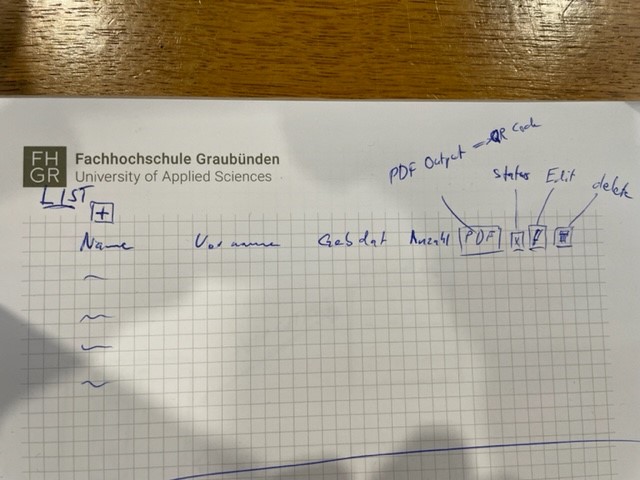 FH
GR
Fachhochschule Graubünden
University of Applied Sciences
PDF Output = QR Code
status Edit delete
LIST
+
Name Vorname Geb dat Anzahl PDF x